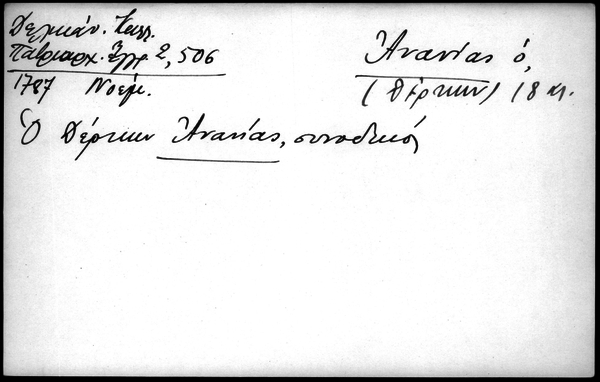 Δελικάν. Καλλ.
Πατριαρχ. Ἔγγρ. 2, 506
1787 Νοέμ.
Ἀνανίας ὁ,
(Δέρκων) 18 αι.
Ὁ Δέρκων Ἀνανίας, συνοδικός